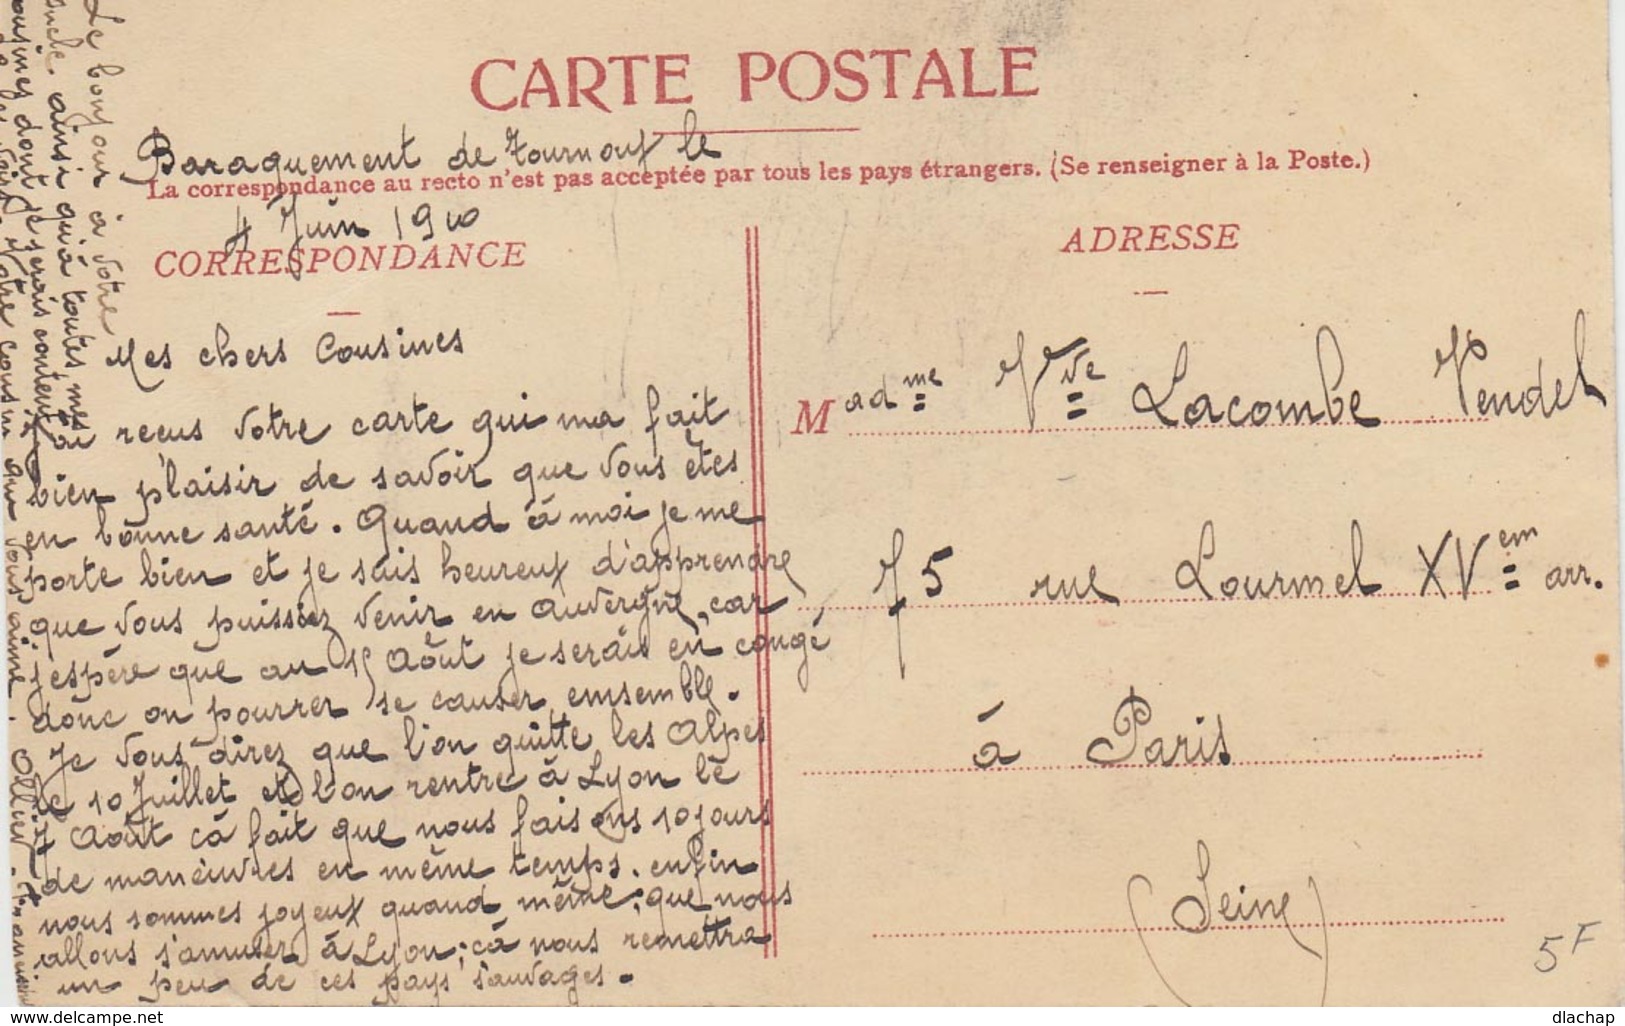 CARTE POSTALE
Baraquement de Tournoux le
La correspondance au recto n'est pas acceptée par tous les pays étrangers. (Se renseigner à la Poste.)
4 Juin 1910
CORRESPONDANCE
Mes chers Cousines
J'ai reçus votre carte qui ma fait
bien plaisir de savoir que vous êtes
en bonne santé. Quand à moi je me
porte bien et je suis heureux d'apprendre
que vous puissiez venir en Auvergne, car
j'espère que au 15 Août je serais en congé
donc on pourrer se causer emsemble.
Je vous direz que l'on quitte les Alpes
le 10 Juillet et l'on rentre à Lyon le
7 Août cà fait que nous faisons 10 jours
de maneuvres en même temps. enfin
nous sommes joyeux quand même, que nous
allons s'amuser à Lyon; cà nous remettra
un peu de ces pays sauvages.
Le bonjour à votre
oncle ainsi qu'à toutes mes
cousines dont je serais content
de les voir. Votre cousin qui vous aime. Ollier
ADRESSE
Madme Vve Lacombe Vendel
75 rue Lourmel XVem arr.
à Paris
(Seine)
5F
www.delcampe.net
dlachap